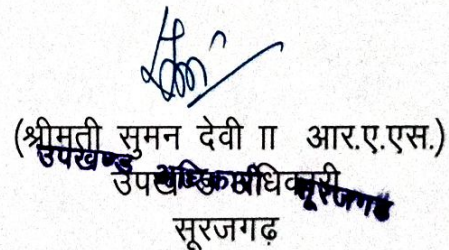 (श्रीमती सुमन देवी II आर.ए.एस.)
उपखण्ड अधिकारी सूरजगढ
उपखण्ड अधिकारी
सूरजगढ़